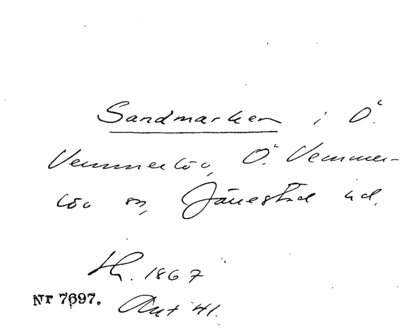 Sandmarken i Ö.
Vemmerlöv, Ö. Vemmer-
löv sn, Järrestad hd.
Hr. 1867
Nr 7697. Ant 41.